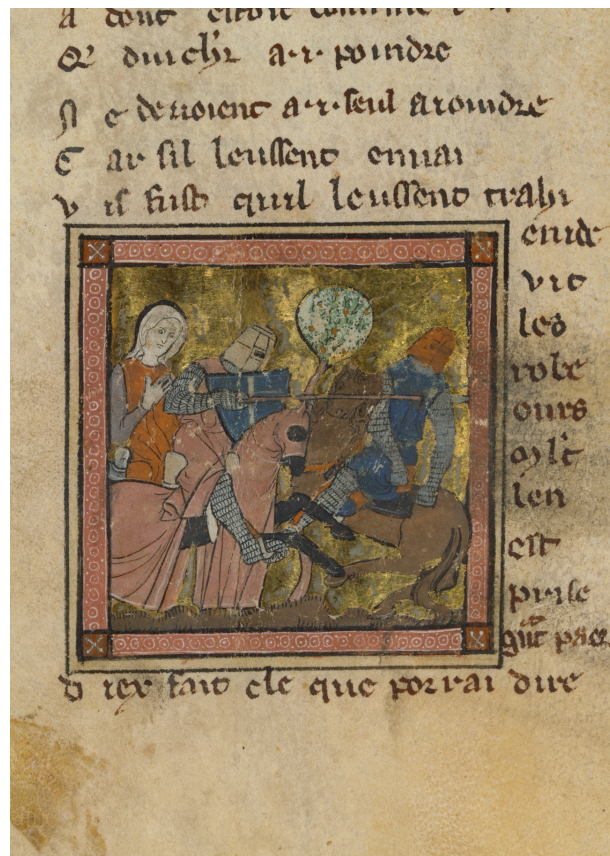 A dont estoit
Q dui chlr a·i· poindre
N e devoient a·i· seul aioindre
C ar sil leussent envai
V is fust quil leussent trahi
enide
vit
les
robe
ours
mlt
len
est
prise
gnt paors
D iex fait ele que porrai dire